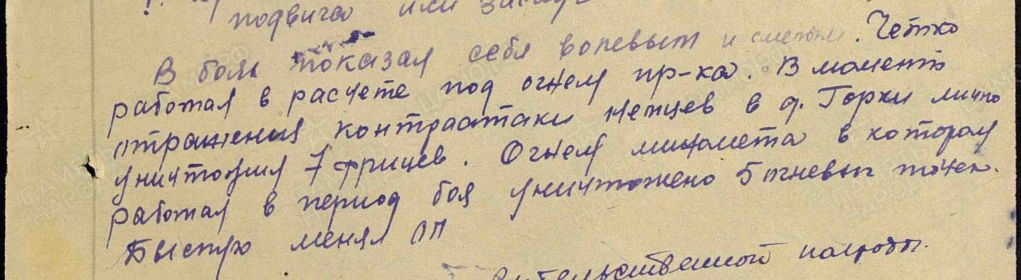 подвига или
В бою показал себя волевым и смелым. Четко
работал в расчете под огнем пр-ка. В момент
отражения контратаки немцев в д. Горки лично
уничтожил 7 фрицев. Огнем миномета в котором
работал в период боя уничтожено 5 огневых точек.
Быстро менял ОП